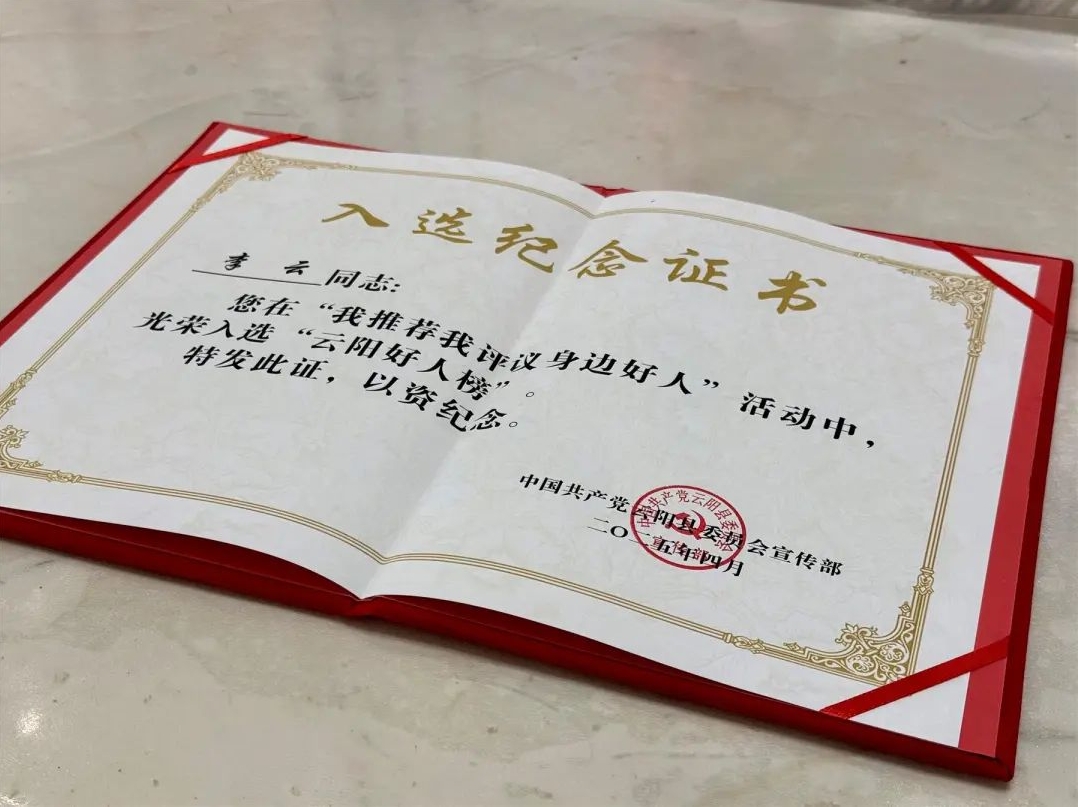 入选纪念证书
李云同志：
您在“我推荐我评议身边好人”活动中，
光荣入选“云阳好人榜”。
特发此证，以资纪念。
中国共产党云阳县委员会宣传部
二〇二五年四月